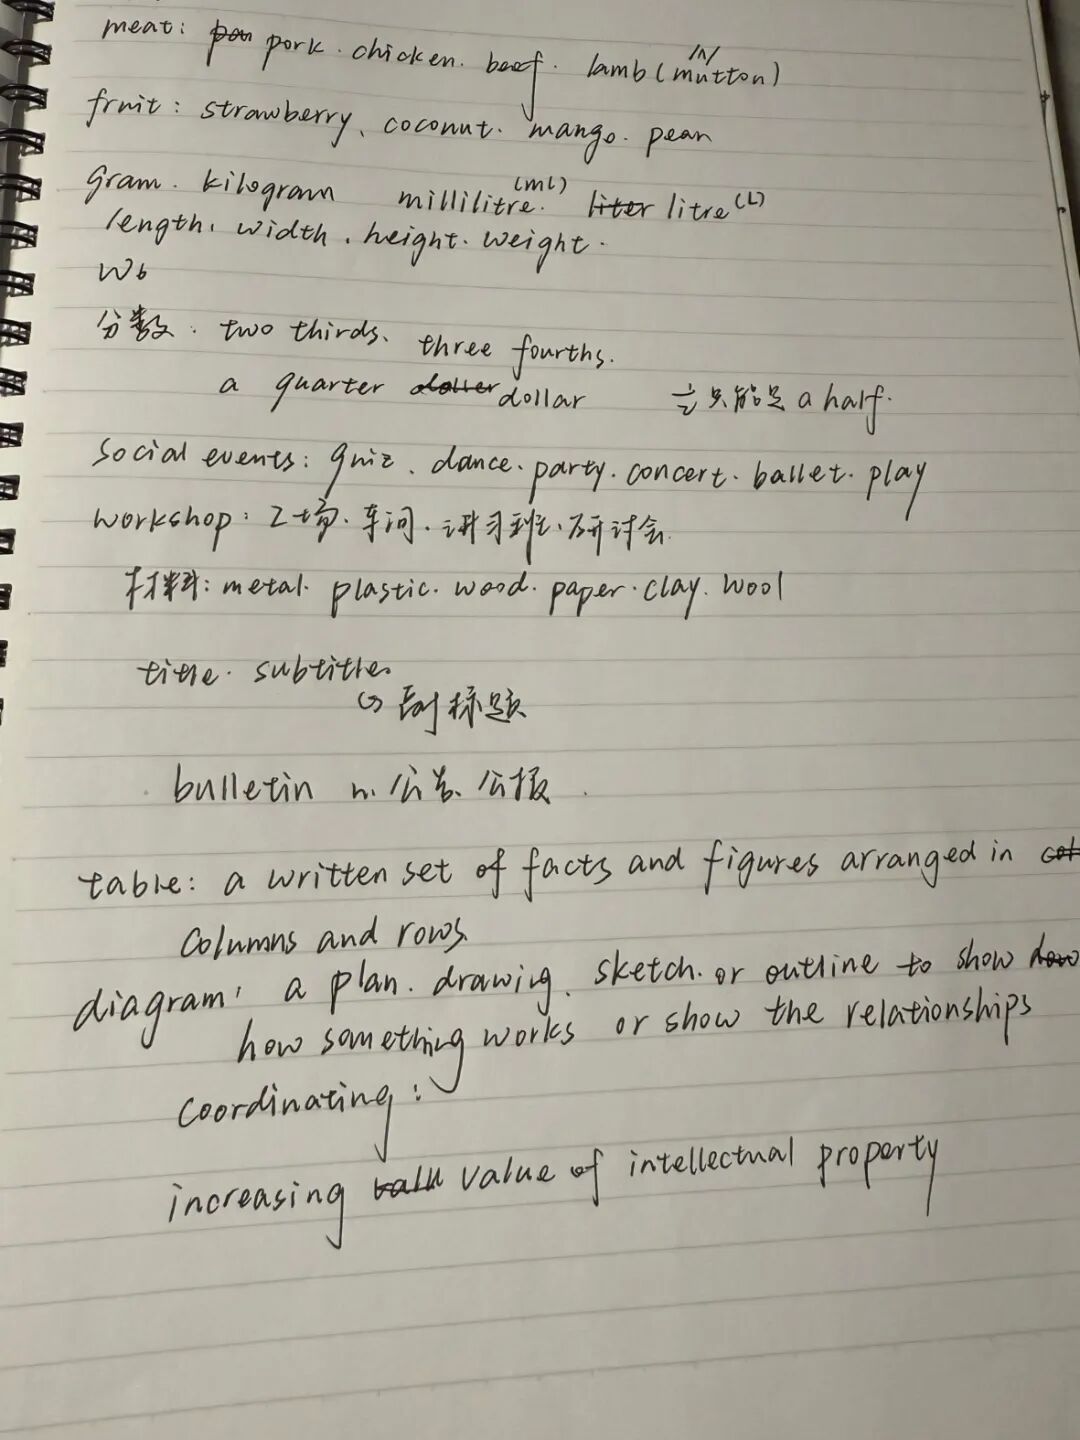 meat: pork. chicken. beef. lamb (mutton) /ʌ/
fruit: strawberry、coconut. mango. pear
gram. kilogram millilitre.(ml) liter litre(L)
length. width. height. weight.
Wo
分数. two thirds、three fourths.
a quarter dollar ½只能是 a half.
social events: quiz. dance. party. concert. ballet. play
workshop: 工场. 车间. 讲习班、研讨会.
材料: metal. plastic. wood. paper. clay. wool
title. subtitle.
↳副标题
bulletin n. 公告、公报.
table: a written set of facts and figures arranged in col
columns and rows.
diagram: a plan. drawing、sketch. or outline to show how
how something works or show the relationships
coordinating:
increasing value of intellectual property